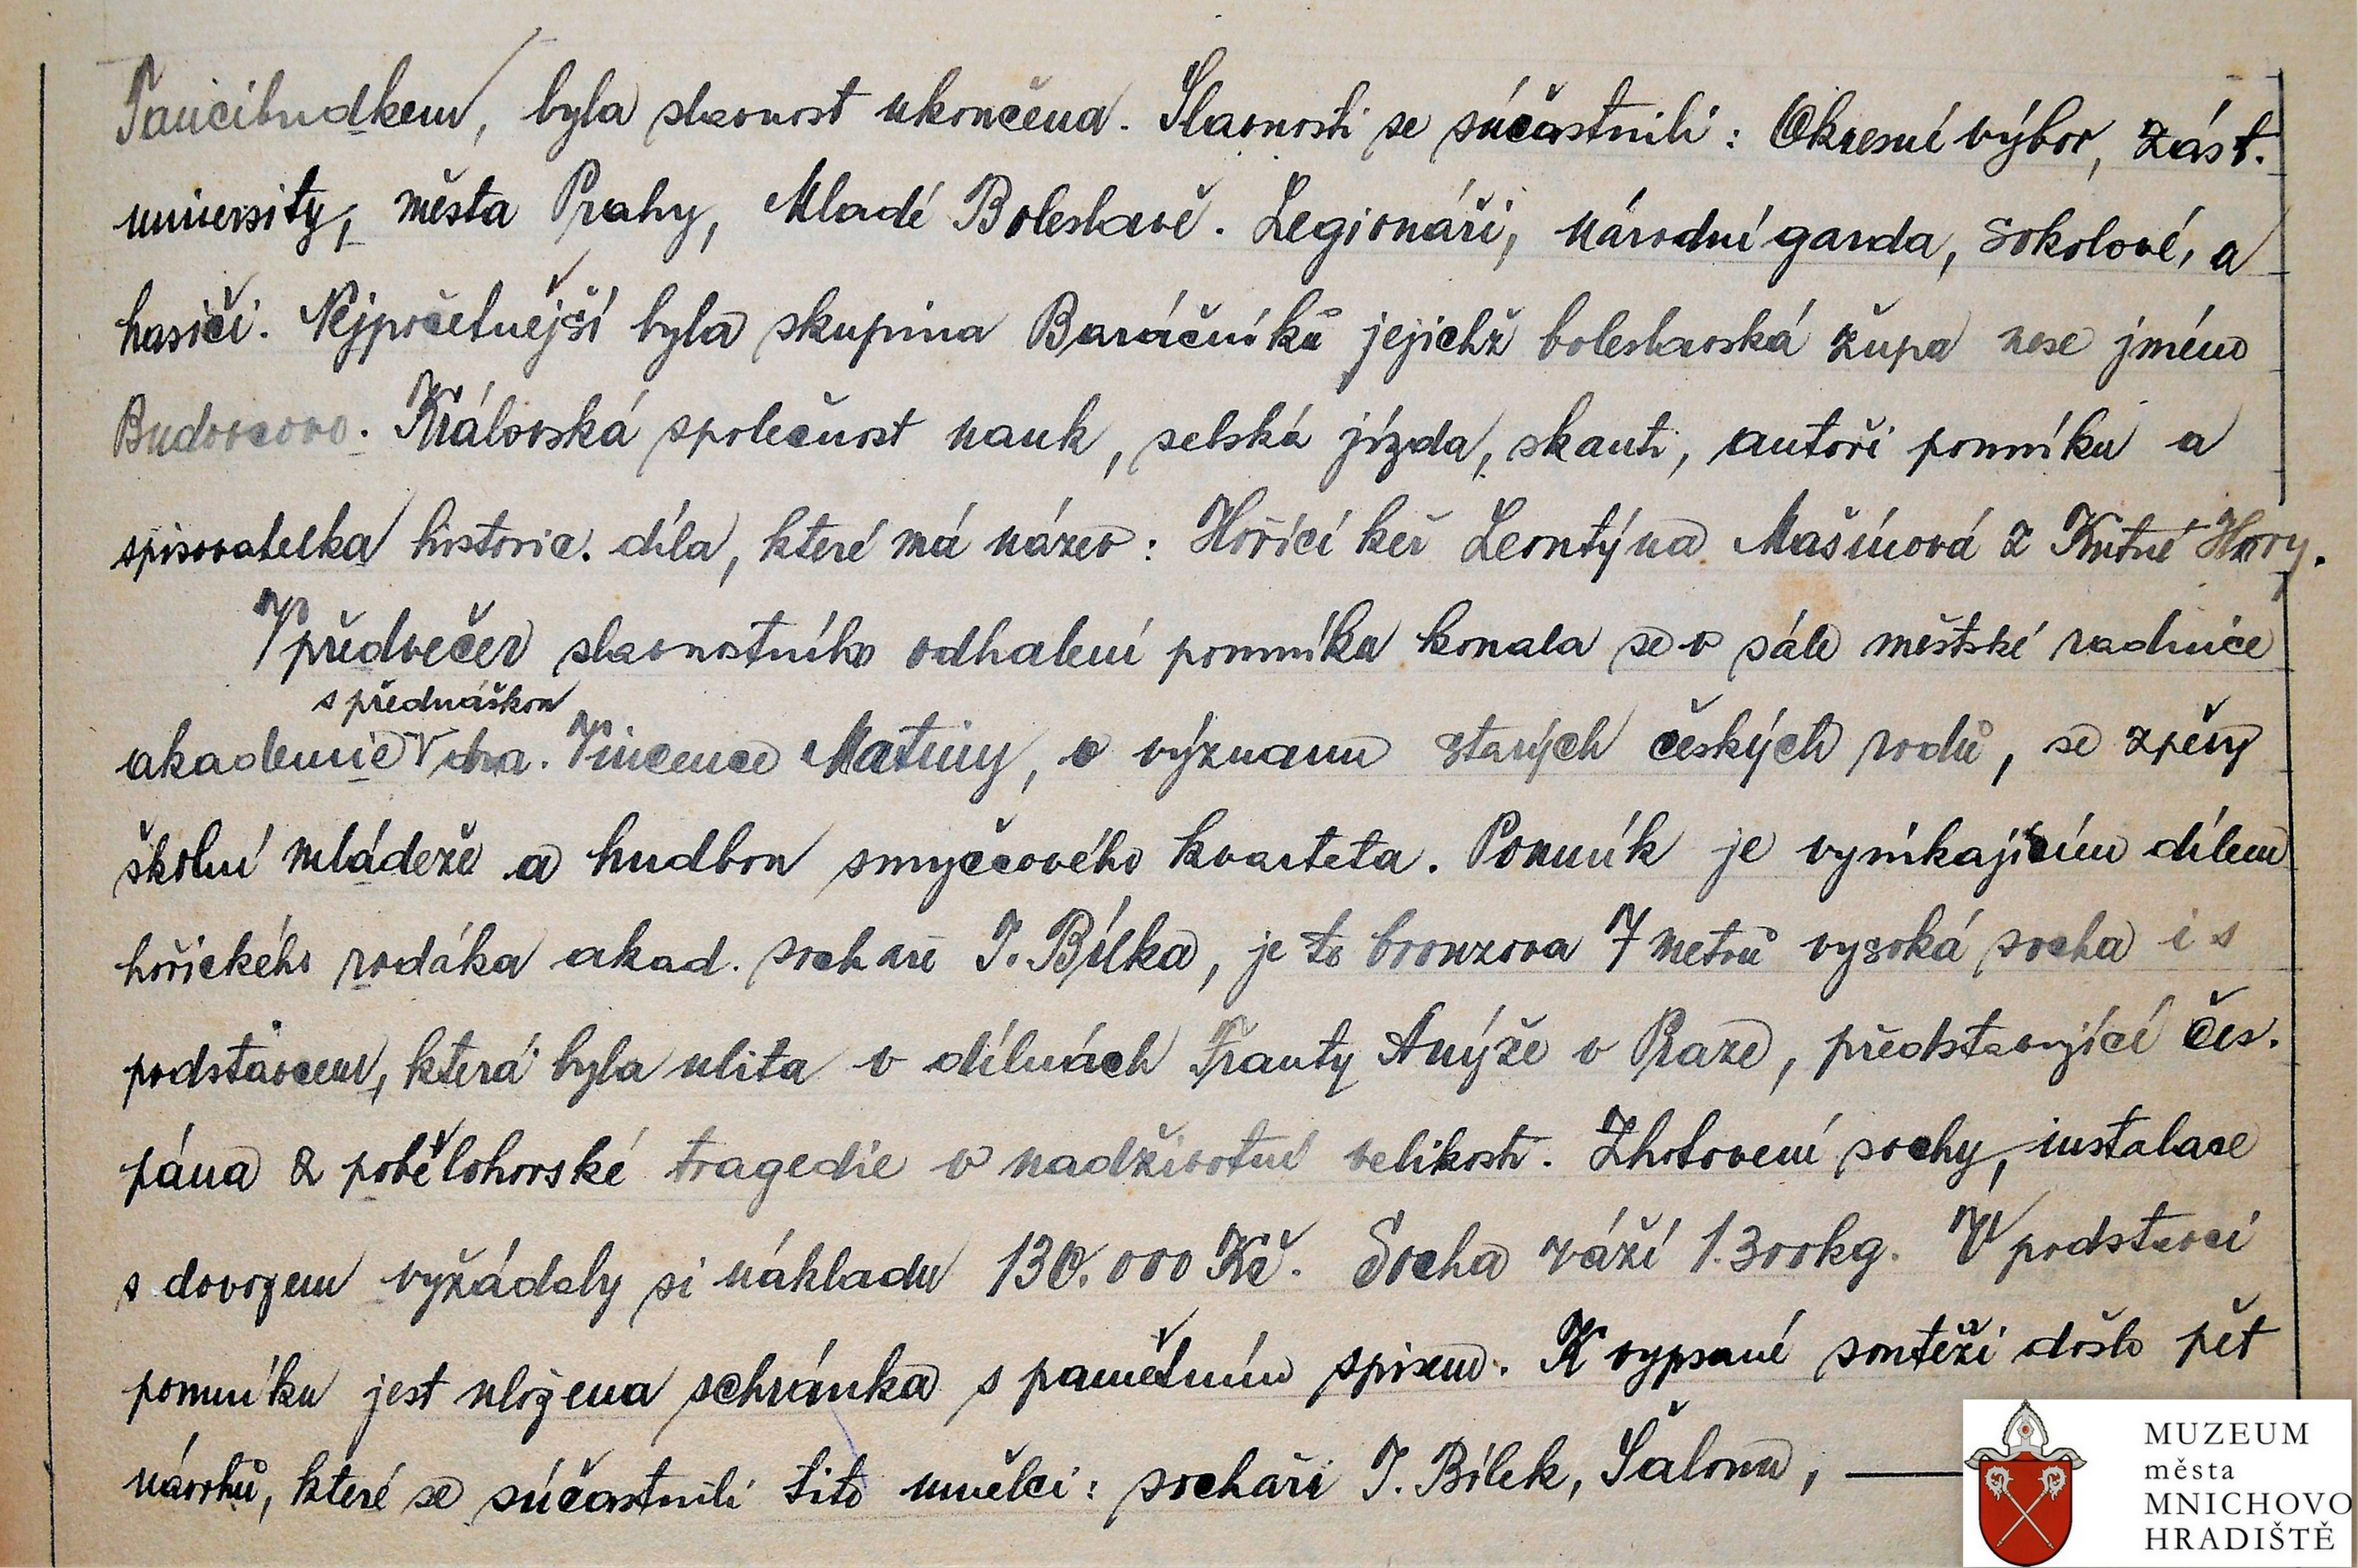 byla slavnost ukončena. Slavnosti se súčastnili: Okresní výbor, zást.
university, města Prahy, Mladé Boleslavě. Legionáři, národní garda, sokolové, a
hasiči. Nejpočetnější byla skupina Baráčníků jejichž boleslavská župa nese jméno
Budovcovo. Královská společnost nauk, selská jízda, skauti, autoři pomníku a
spisovatelka historic. díla, které má název: Hořící keř Leontýna Mašínová z Kutné Hory.
V předvečer slavnostního odhalení pomníku konala se v sále městské radnice
s přednáškou
akademie dra. Vincence Matiny, o významu starých českých rodů, se zpěvy
školní mládeže a hudbou smyčcového kvarteta. Pomník je vynikajícím dílem
hořického rodáka akad. sochaře J. Bílka, je to bronzova 7 metrů vysoká socha i s
podstavcem, která byla ulita v dílnách Franty Anýže v Praze, představující čes.
pána z pobělohorské tragedie v nadživotní velikosti. Zhotovení sochy, instalace
s dovozem vyžádaly si nákladu 130.000 Kč. Socha váží 1.300kg. V podstavci
pomníku jest uložena schránka s pamětním spisem. K vypsané soutěži došlo pět
návrhů, které se súčastnili tito umělci: sochaři J. Bílek, Šaloun, —
MUZEUM
města
MNICHOVO
HRADIŠTĚ